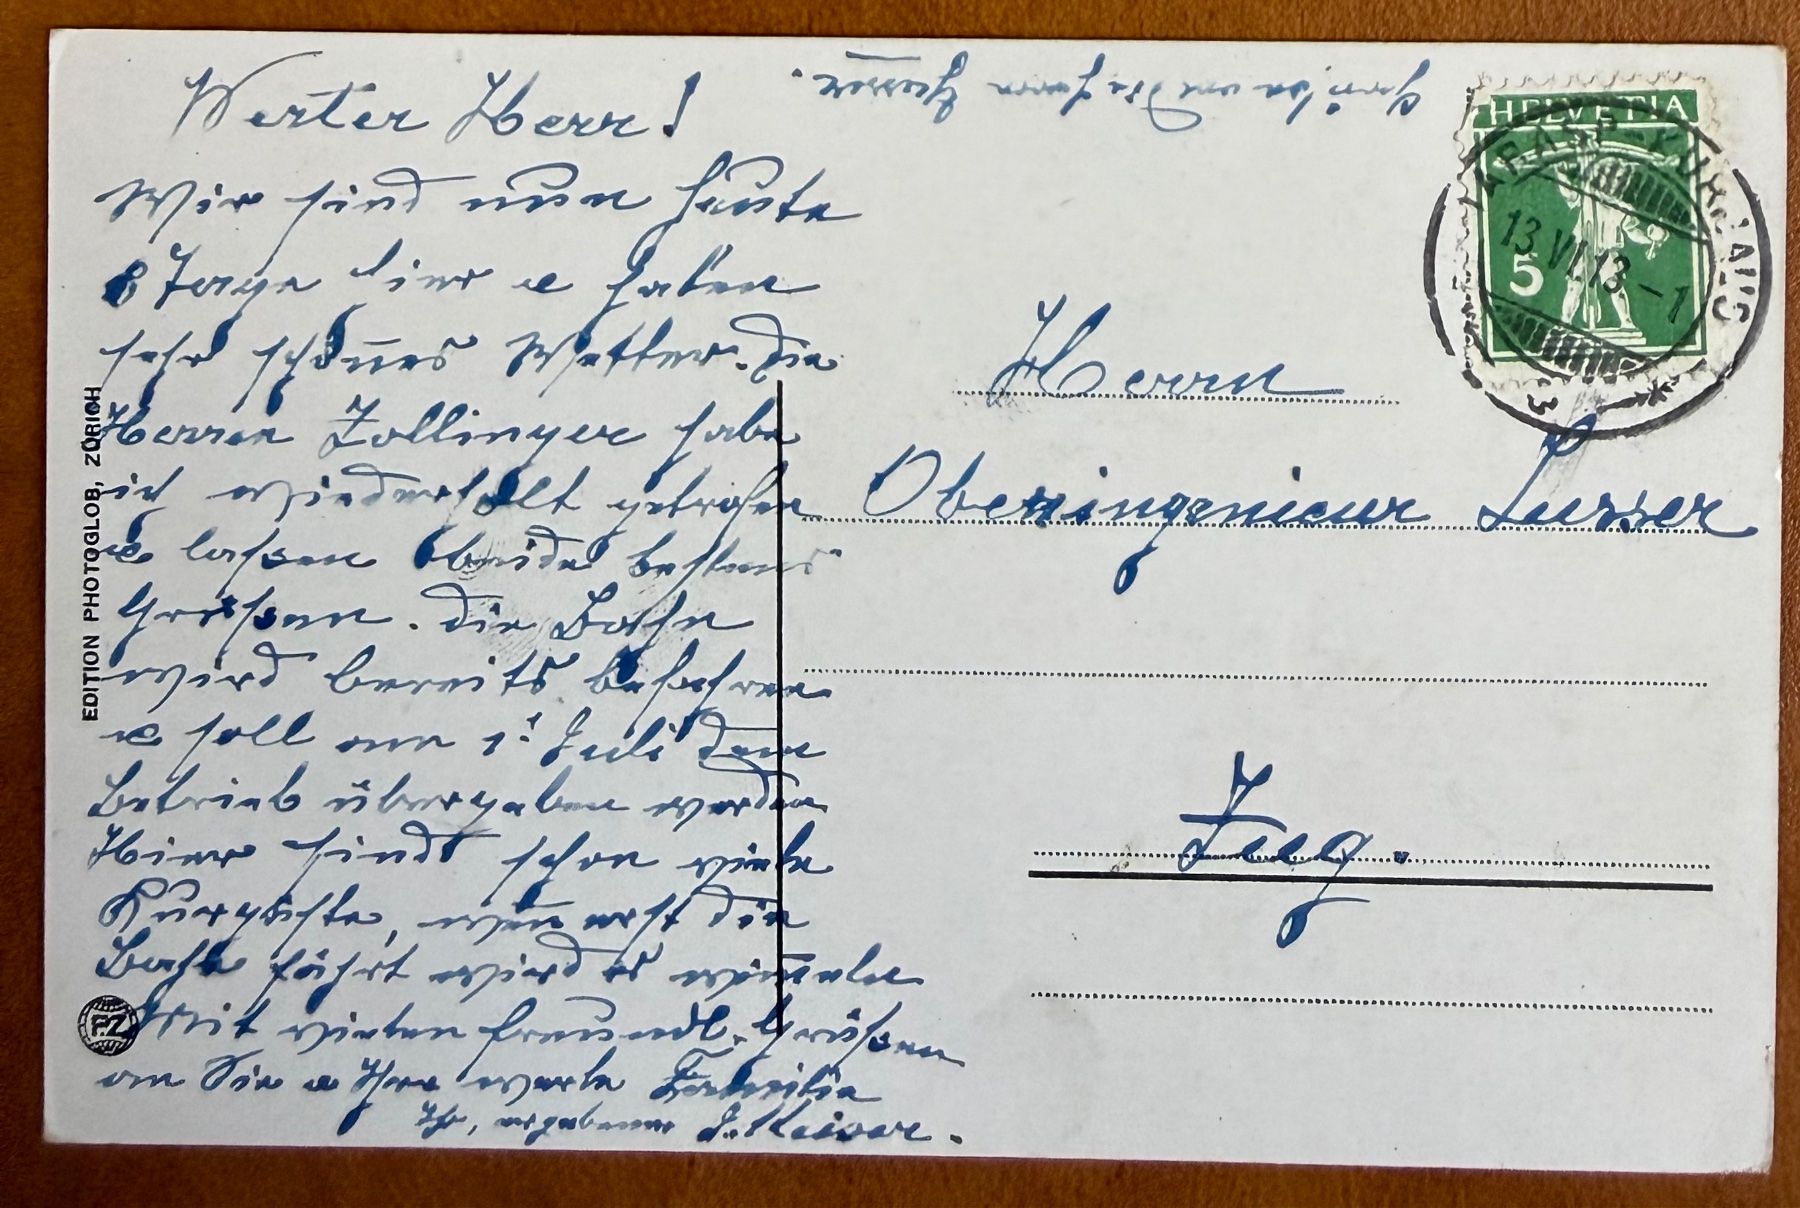 Werter Herr!
Wir sind nun heute
8 Tage hier u haben
sehr schönes Wetter. Die
Herren Zollinger habe
ich wiederholt getrofen
u lassen beide bestens
Grüssen. Die Bahn
wird bereits befahren
u soll am 1. Juli dem
Betrieb übergeben werden
Hier sind schon viele
Kurgäste, wenn erst die
Bahn fährt wird es wimmeln
Mit vielen freundl. Grüssen
an Sie u Ihre werte Familie
Ihr, ergebener J. Meier.
Herren
HELVETIA
5
KURHAUS
13.VI.13-1
Herrn
Oberingenieur Lusser
Zug.
EDITION PHOTOGLOB, ZÜRICH
P.Z